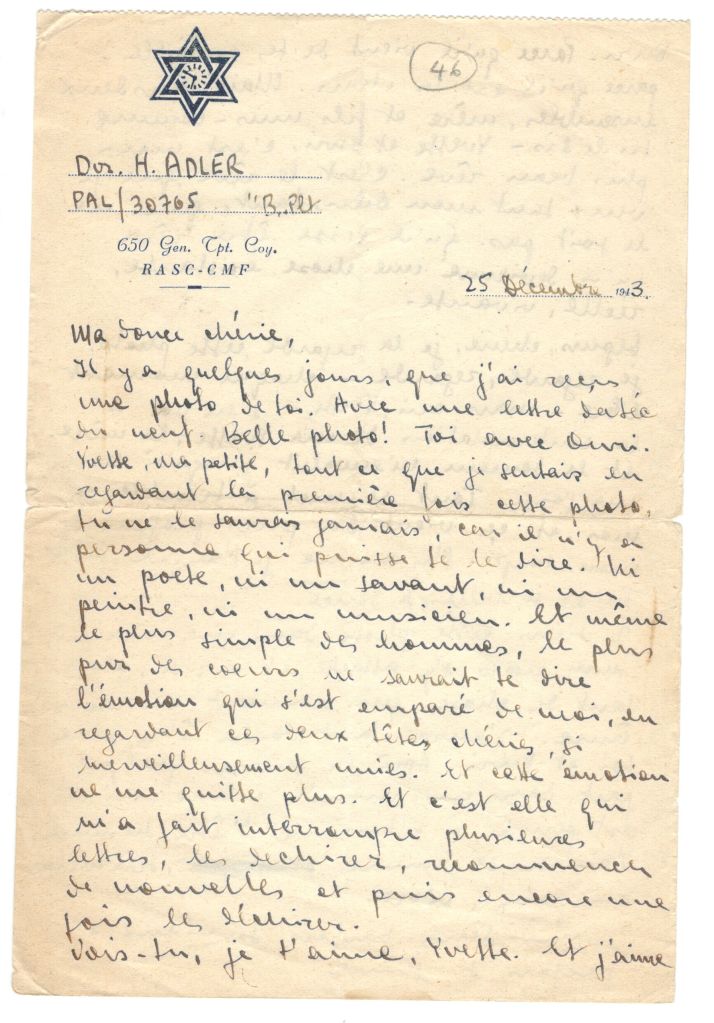 46
Dvr. H. ADLER
PAL/30765 "B. Plt
650 Gen. Tpt. Coy.
RASC-CMF
25 Décembre 1943.
Ma douce chérie,
Il y a quelques jours, que j'ai reçu
une photo de toi. Avec une lettre datée
du neuf. Belle photo! Toi avec Ouri.
Yvette, ma petite, tout ce que je sentais en
regardant la première fois cette photo,
tu ne le sauras jamais, car il n'y a
personne qui puisse te le dire. Ni
un poete, ni un savant, ni un
peintre, ni un musicien. Et même
le plus simple des hommes, le plus
pur des coeurs ne saurait te dire
l'émotion qui s'est emparé de moi, en
regardant ces deux têtes chéries, si
merveilleusement unies. Et cette émotion
ne me quitte plus. Et c'est elle qui
m'a fait interrompre plusieures
lettres, les dechirer, recommencer
de nouvelles et puis encore une
fois les déchirer.
Vois-tu, je t'aime, Yvette. Et j'aime